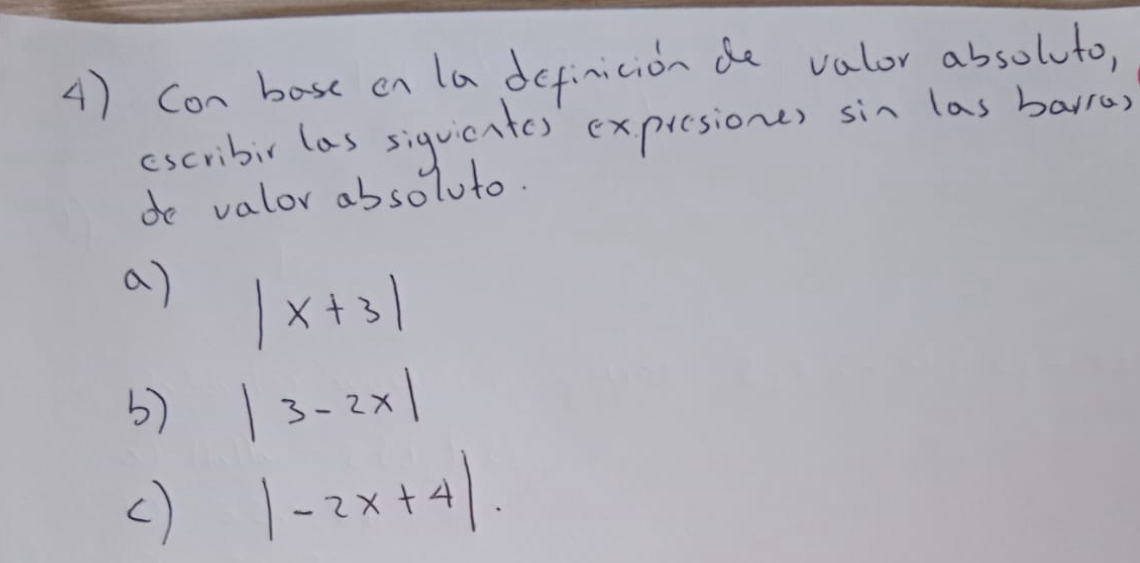 4) Con base en la definición de valor absoluto,
escribir las siguientes expresiones sin las barras
de valor absoluto.
a) |x+3|
b) |3-2x|
c) |-2x+4|.